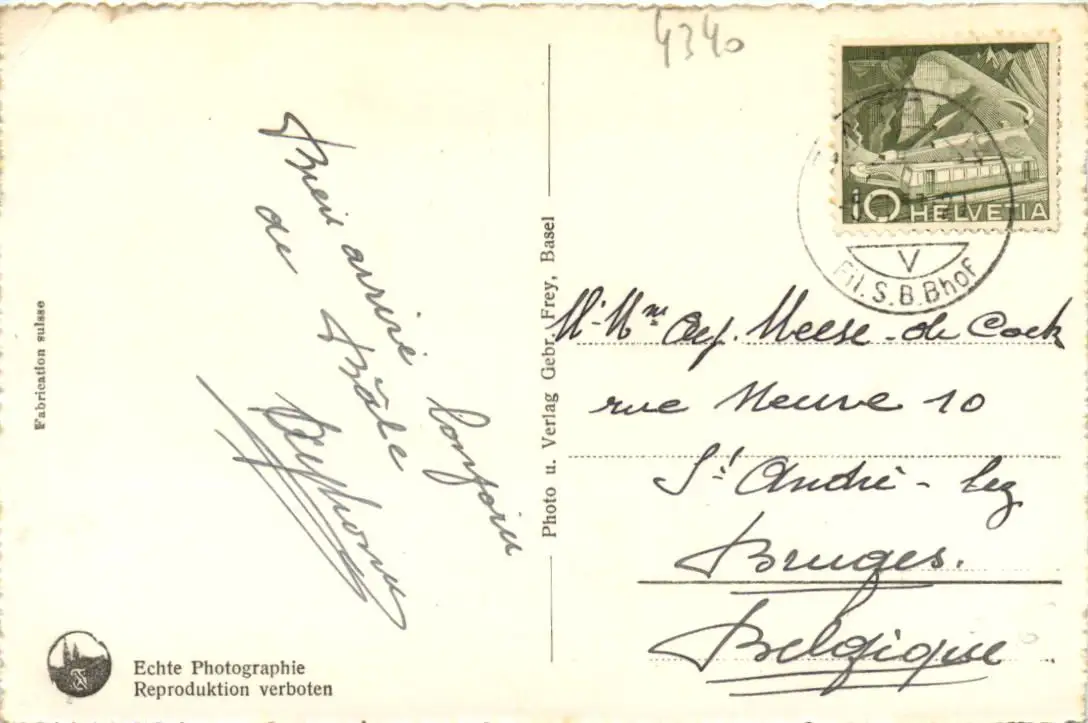 4340
10 HELVETIA
V
Fil. S.B.Bhof
Bien arrivé
de Bâle
Alphonse
Fabrication suisse
Photo u. Verlag Gebr. Frey, Basel
Mr-Mme Meese-de Cock
rue Neuve 10
St André-lez
Bruges.
Belgique
Echte Photographie
Reproduktion verboten